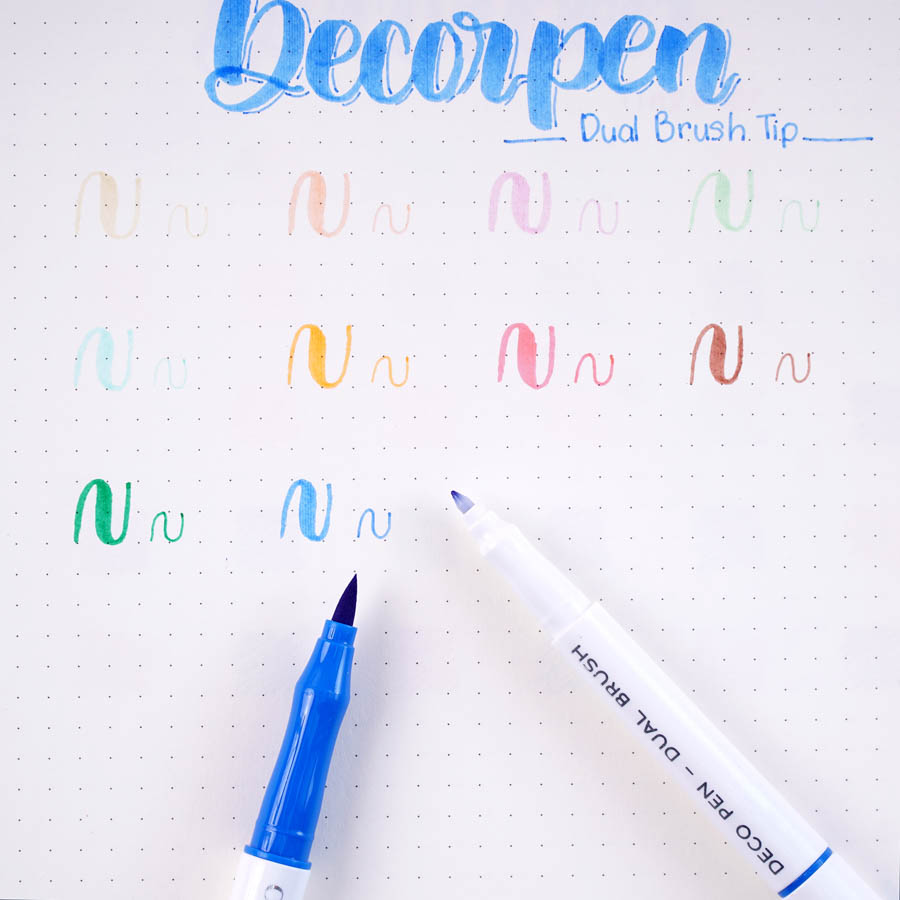 Decorpen
Dual Brush Tip
N N N N N N N N
N N N N N N N N
N N N N
DECO PEN - DUAL BRUSH